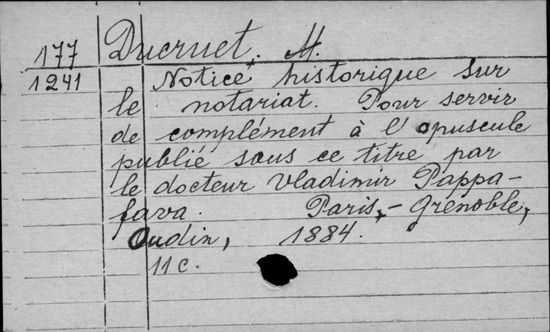 177 Ducruet, M.
1241 Notice historique sur
le notariat. Pour servir
de complément à l'opuscule
publié sous ce titre par
le docteur Vladimir Pappa-
fava. Paris, - Grenoble,
Oudin, 1884.
11 c.